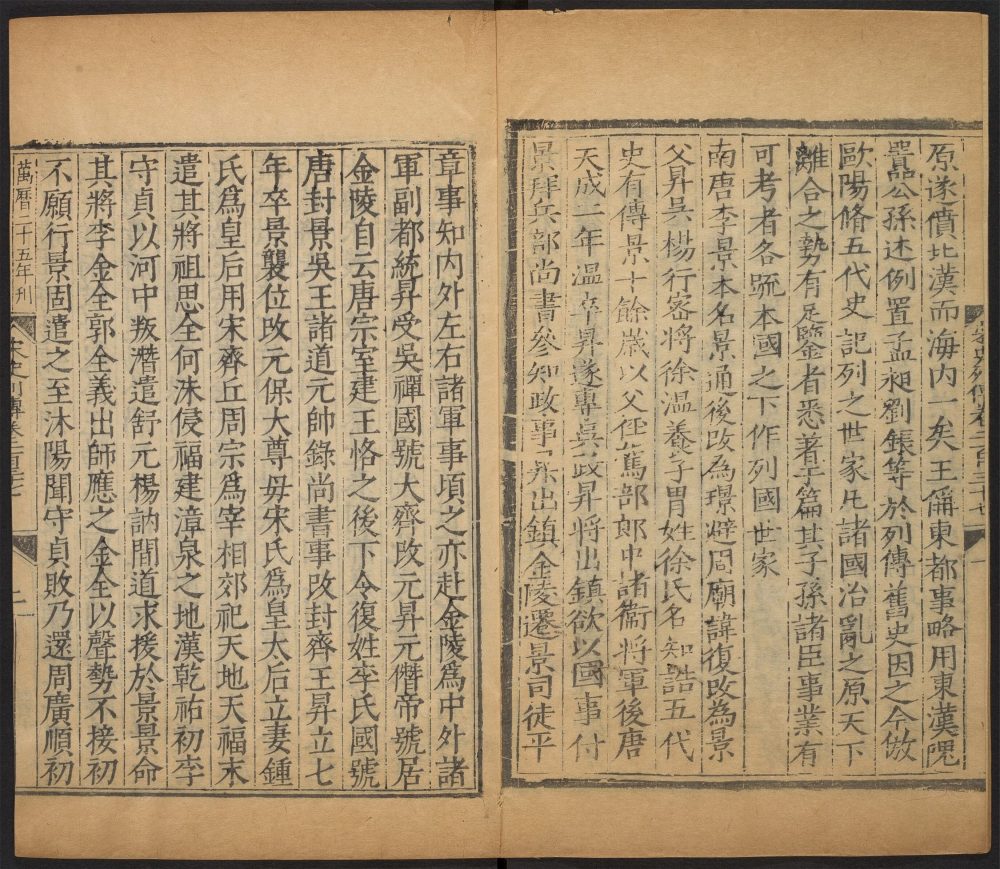 宋史列傳卷二百三十七 一
原遂僨北漢而海内一矣王偁東都事略用東漢隗
囂公孫述例置孟昶劉鋹等於列傳舊史因之今倣
歐陽脩五代史記列之世家凡諸國治亂之原天下
離合之勢有足鑒者悉著于篇其子孫諸臣事業有
可考者各疏本國之下作列國世家
南唐李景本名景通後改為璟避周廟諱復改為景
父昇吳楊行密將徐溫養子冐姓徐氏名知誥五代
史有傳景十餘歲以父任爲部郎中諸衞將軍後唐
天成二年溫卒昇遂專吳政昇將出鎮欲以國事付
景拜兵部尚書參知政事昇出鎮金陵遷景司徒平
章事知内外左右諸軍事頃之亦赴金陵爲中外諸
軍副都統昇受吳禪國號大齊改元昇元僭帝號居
金陵自云唐宗室建王恪之後下令復姓李氏國號
唐封景吳王諸道元帥錄尚書事改封齊王昇立七
年卒景襲位改元保大尊毋宋氏爲皇太后立妻鍾
氏爲皇后用宋齊丘周宗爲宰相郊祀天地天福末
遣其將祖思全何洙侵福建漳泉之地漢乾祐初李
守貞以河中叛潛遣舒元楊訥間道求援於景景命
其將李金全郭全義出師應之金全以聲勢不接初
不願行景固遣之至沐陽聞守貞敗乃還周廣順初
萬曆二十五年刊
宋史列傳卷二百三十七 二